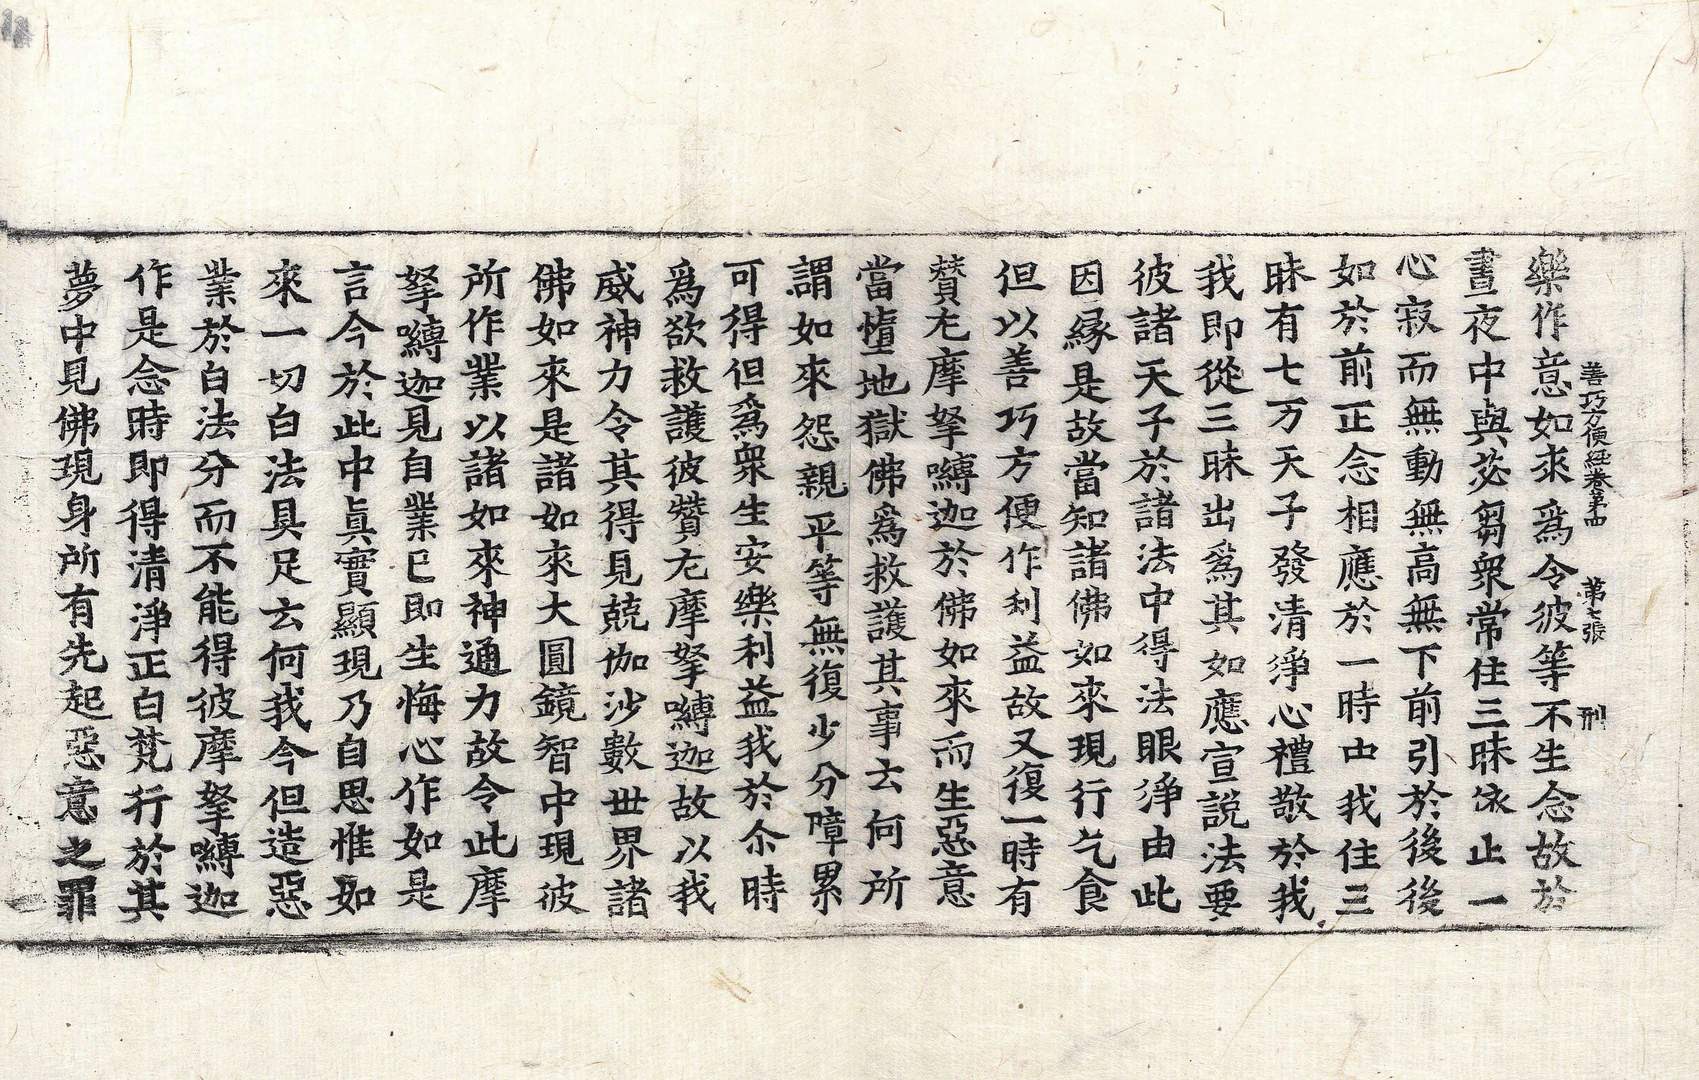 善巧方便經卷第四　第七張　刑
樂作意如來爲令彼等不生念故於
晝夜中與苾芻衆常住三昧依止一
心寂而無動無高無下前引於後後
如於前正念相應於一時中我住三
昧有七万天子發清淨心禮敬於我
我即從三昧出爲其如應宣說法要
彼諸天子於諸法中得法眼淨由此
因縁是故當知諸佛如來現行乞食
但以善巧方便作利益故又復一時有
贊尢摩拏嚩迦於佛如來而生惡意
當墮地獄佛爲救護其事去何所
謂如來怨親平等無復少分障累
可得但爲衆生安樂利益我於尒時
爲欲救護彼贊尢摩拏嚩迦故以我
威神力令其得見兢伽沙數世界諸
佛如來是諸如來大圓鏡智中現彼
所作業以諸如來神通力故令此摩
拏嚩迦見自業已即生悔心作如是
言今於此中眞實顯現乃自思惟如
來一切白法具足去何我今但造惡
業於白法分而不能得彼摩拏嚩迦
作是念時即得清淨正白梵行於其
夢中見佛現身所有先起惡意之罪